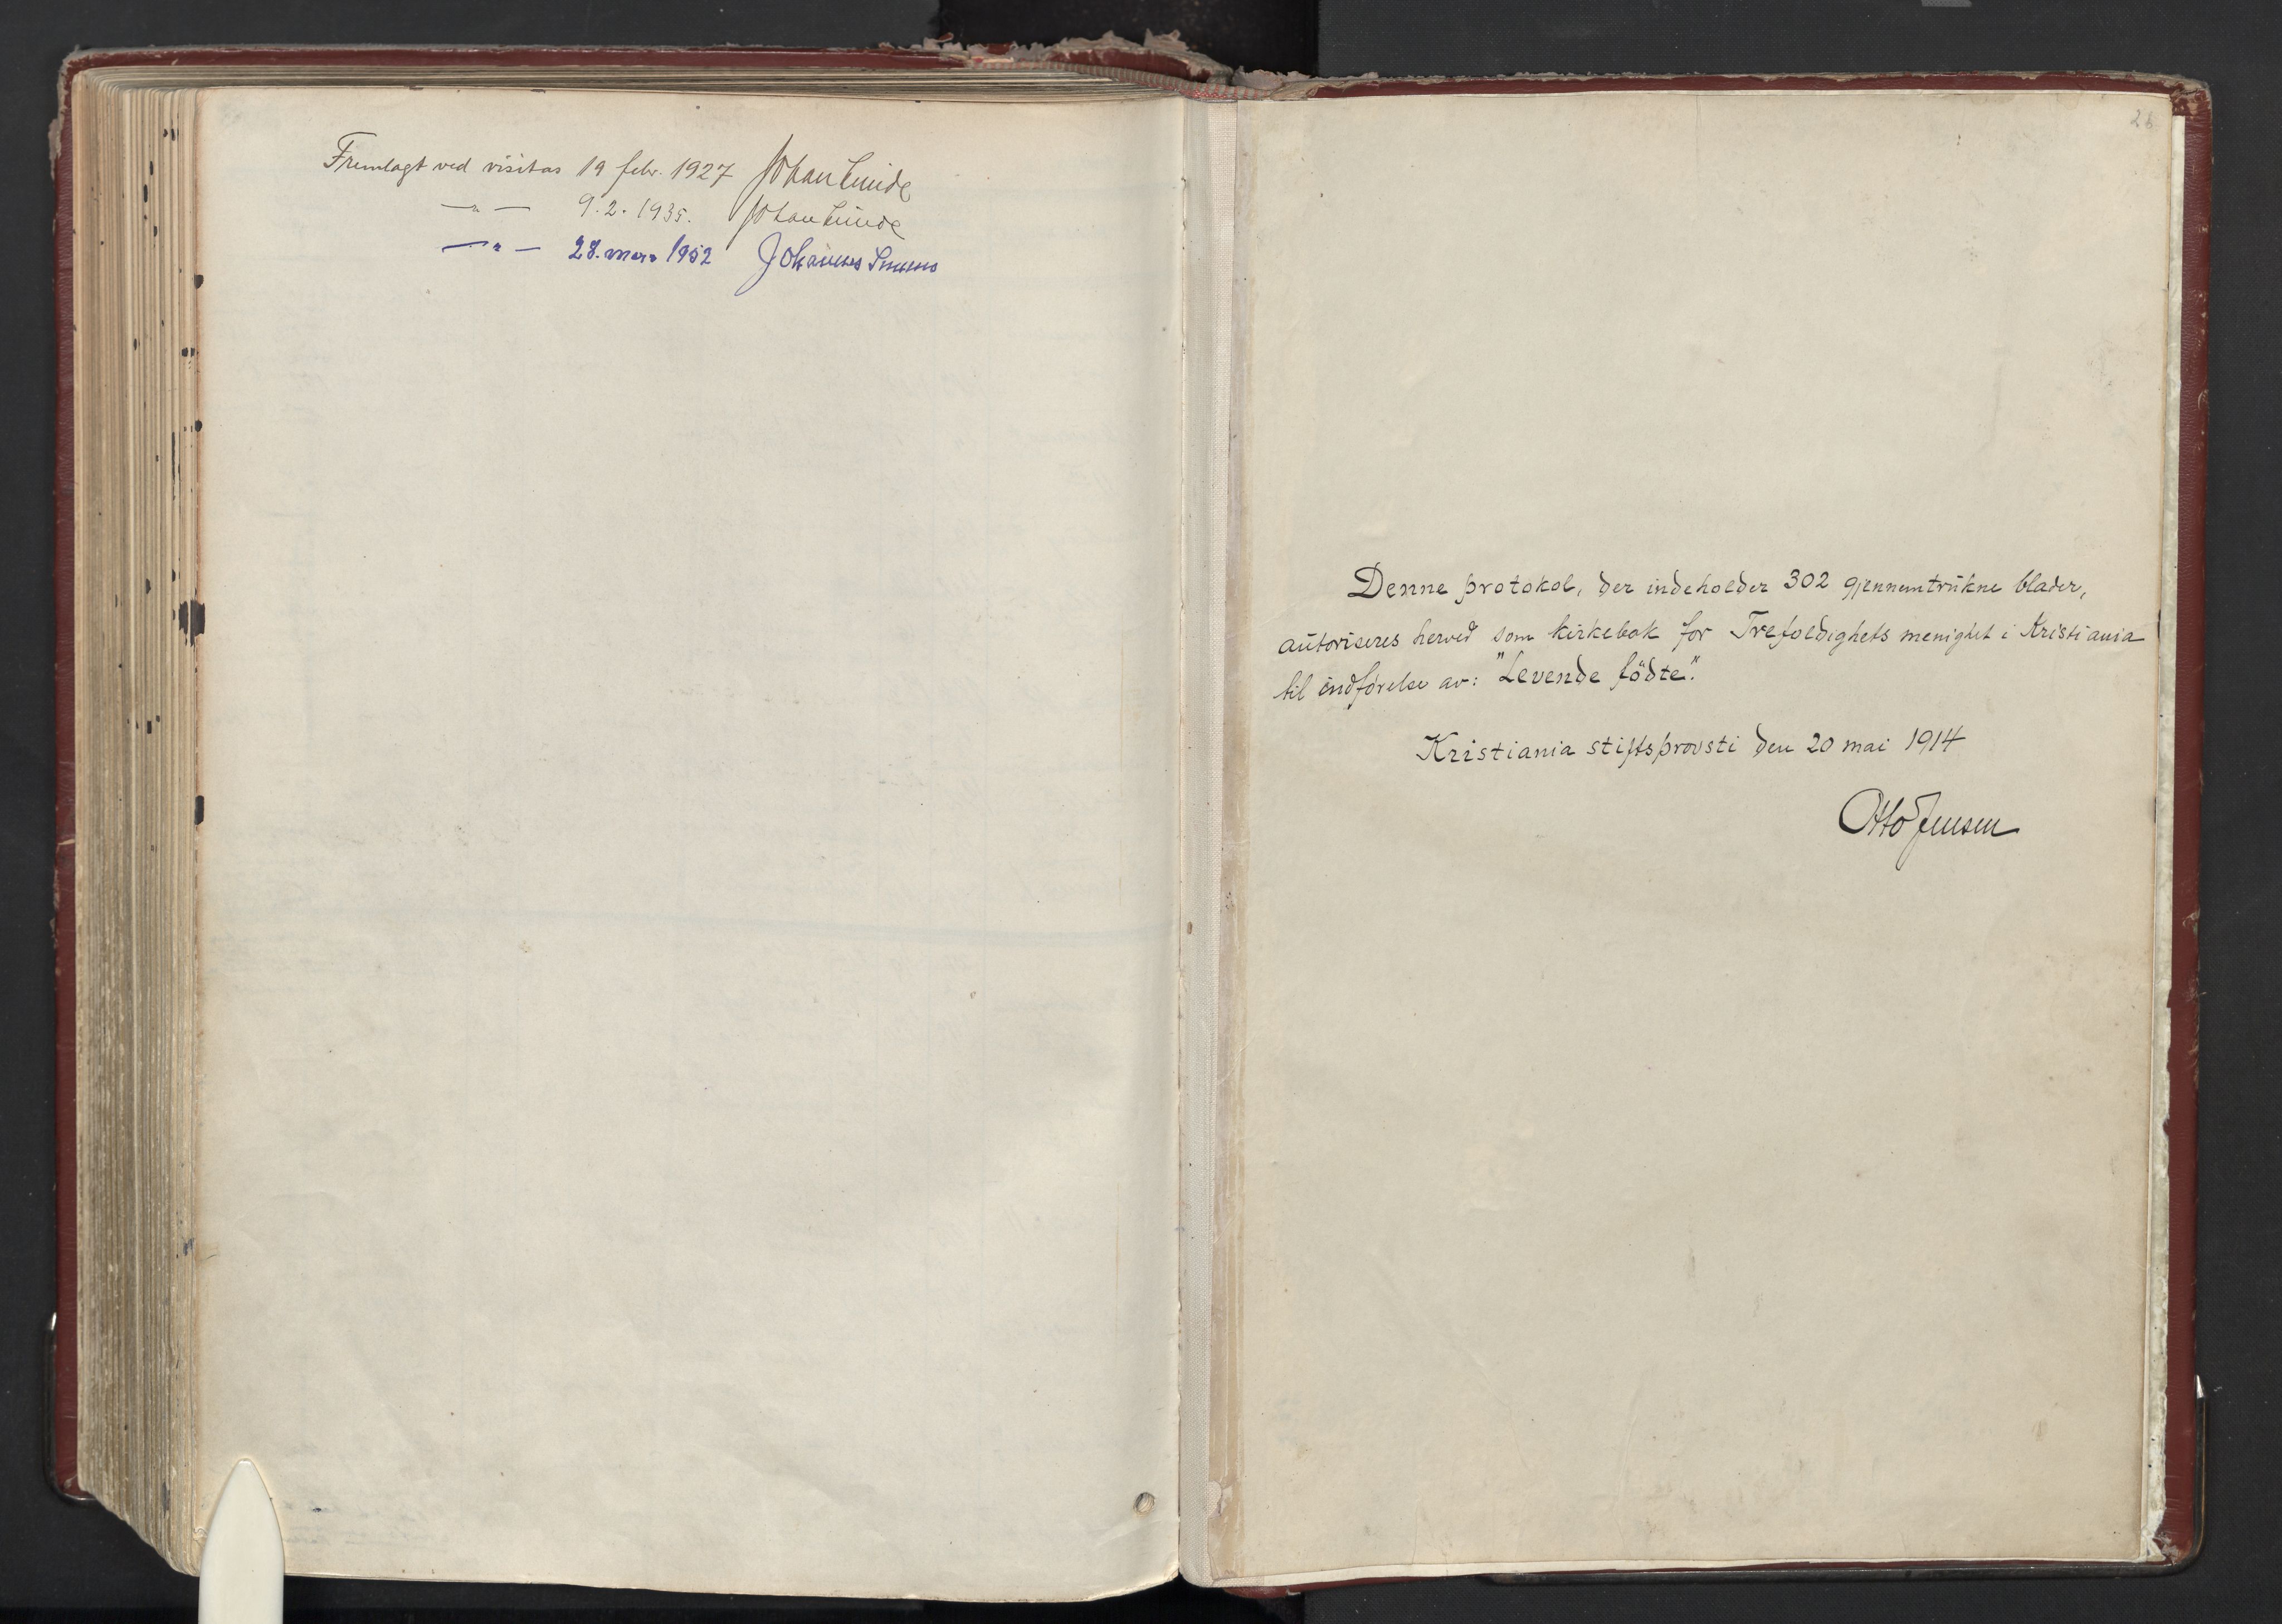 Fremlagt ved visitas 19 febr. 1927 Johan Lunde
— " — 9.2.1935. Johan Lunde
— " — 28. mars 1952 Johannes Smemo
26
Denne protokol, der indeholder 302 gjennemtrukne blader,
autoriseres herved som kirkebok for Trefoldighets menighet i Kristiania
til indførelse av: "Levende födte".
Kristiania stiftsprovsti den 20 mai 1914
Otto Jensen